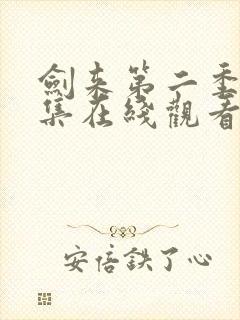 劍来第二季
集在綫觀看
安倍鉄了心